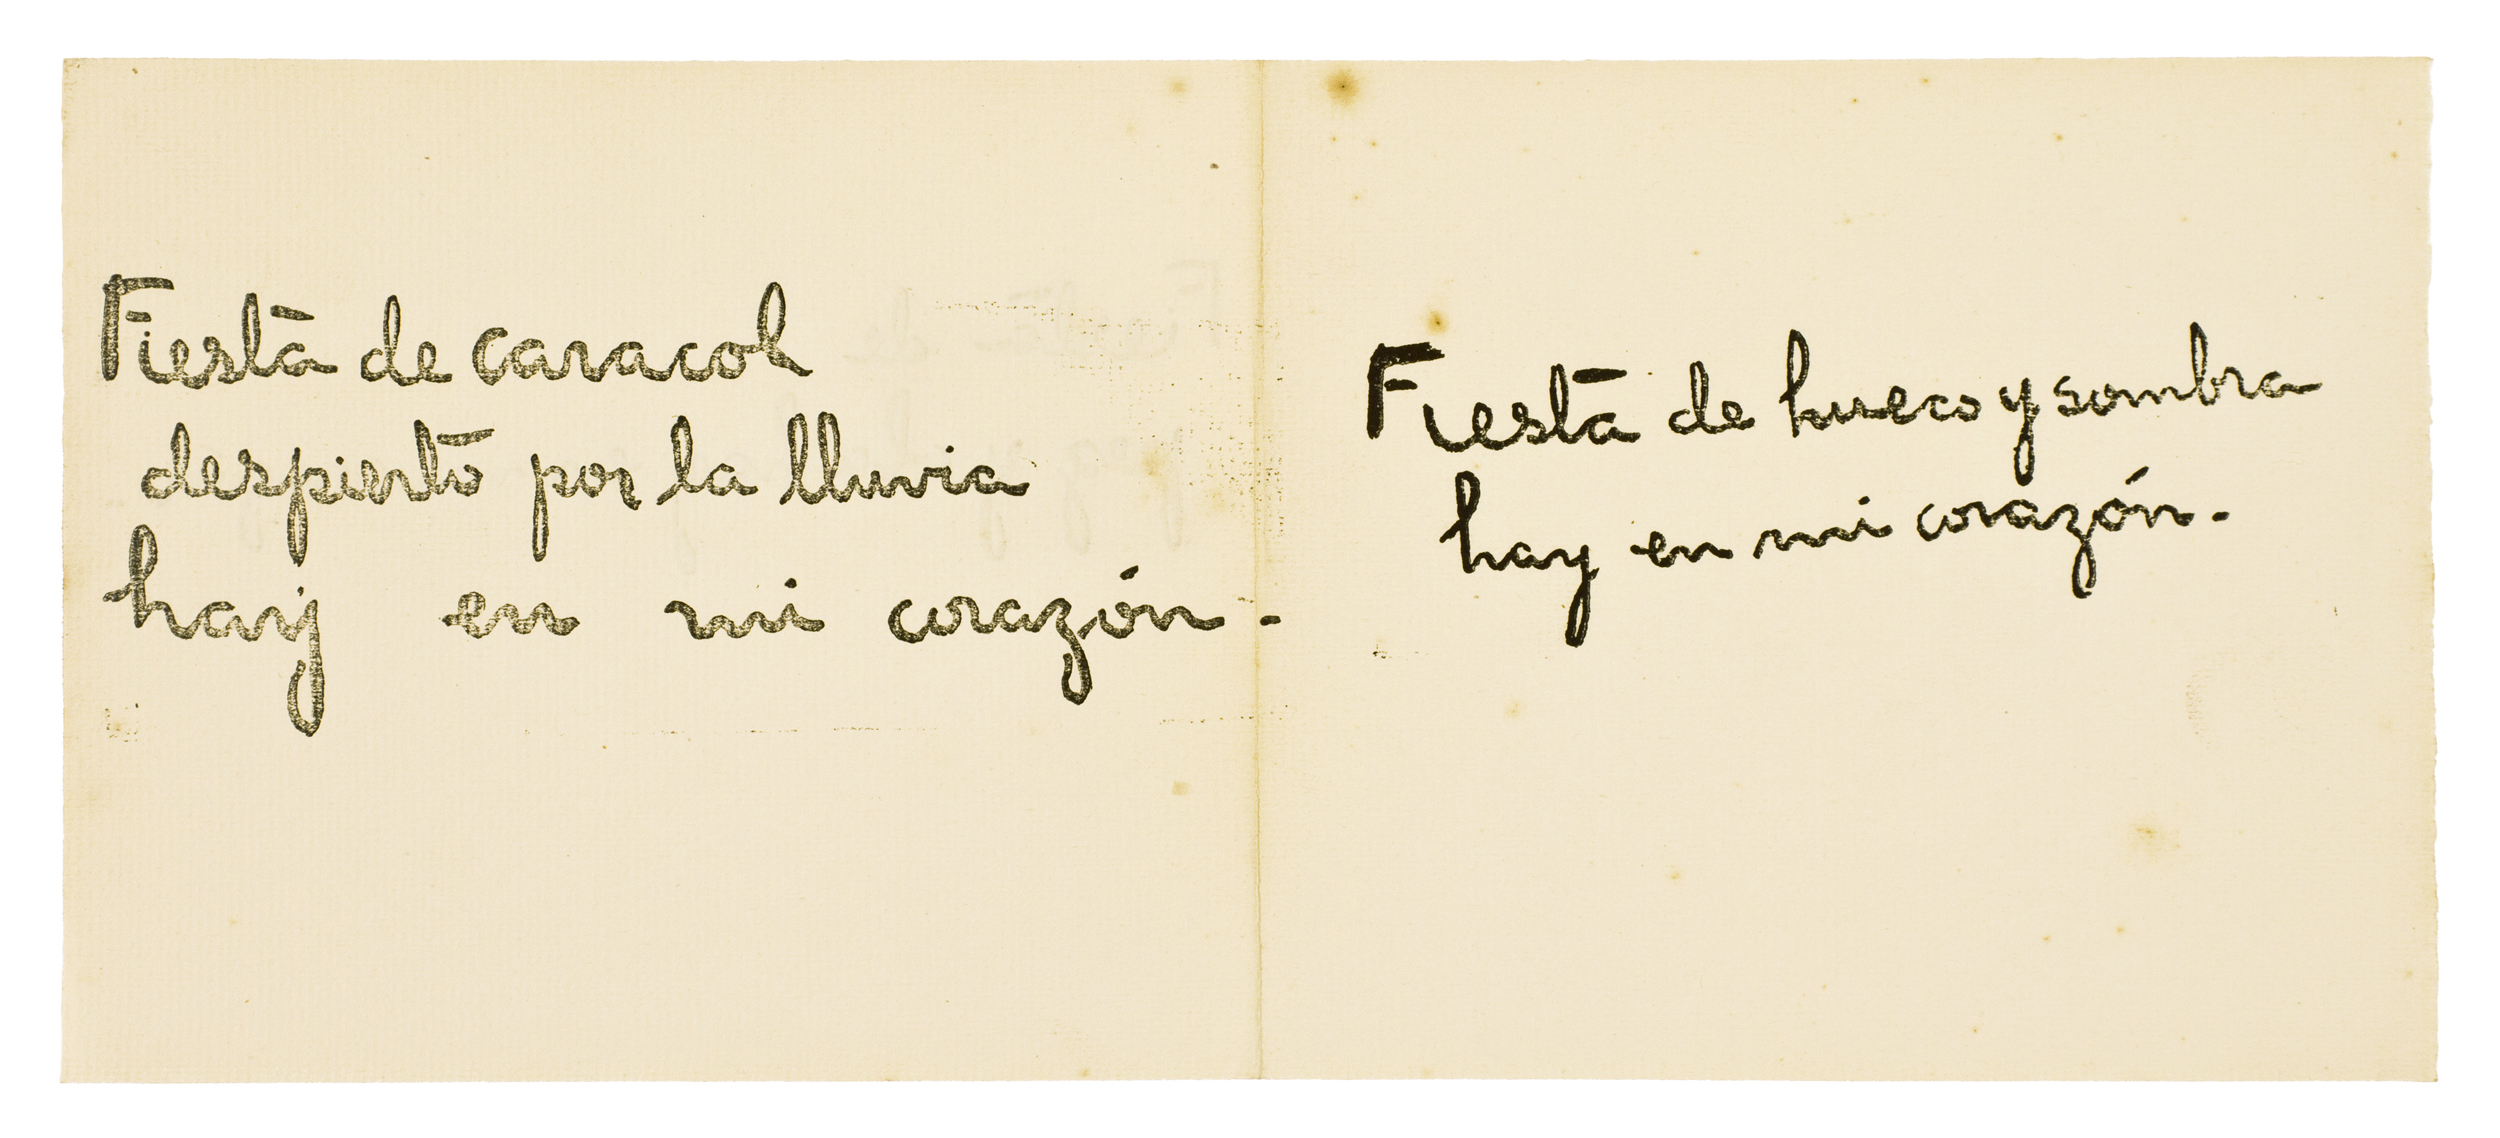 Fiesta de caracol
despierto por la lluvia
hay en mi corazón.
Fiesta de hueco y sombra
hay en mi corazón.